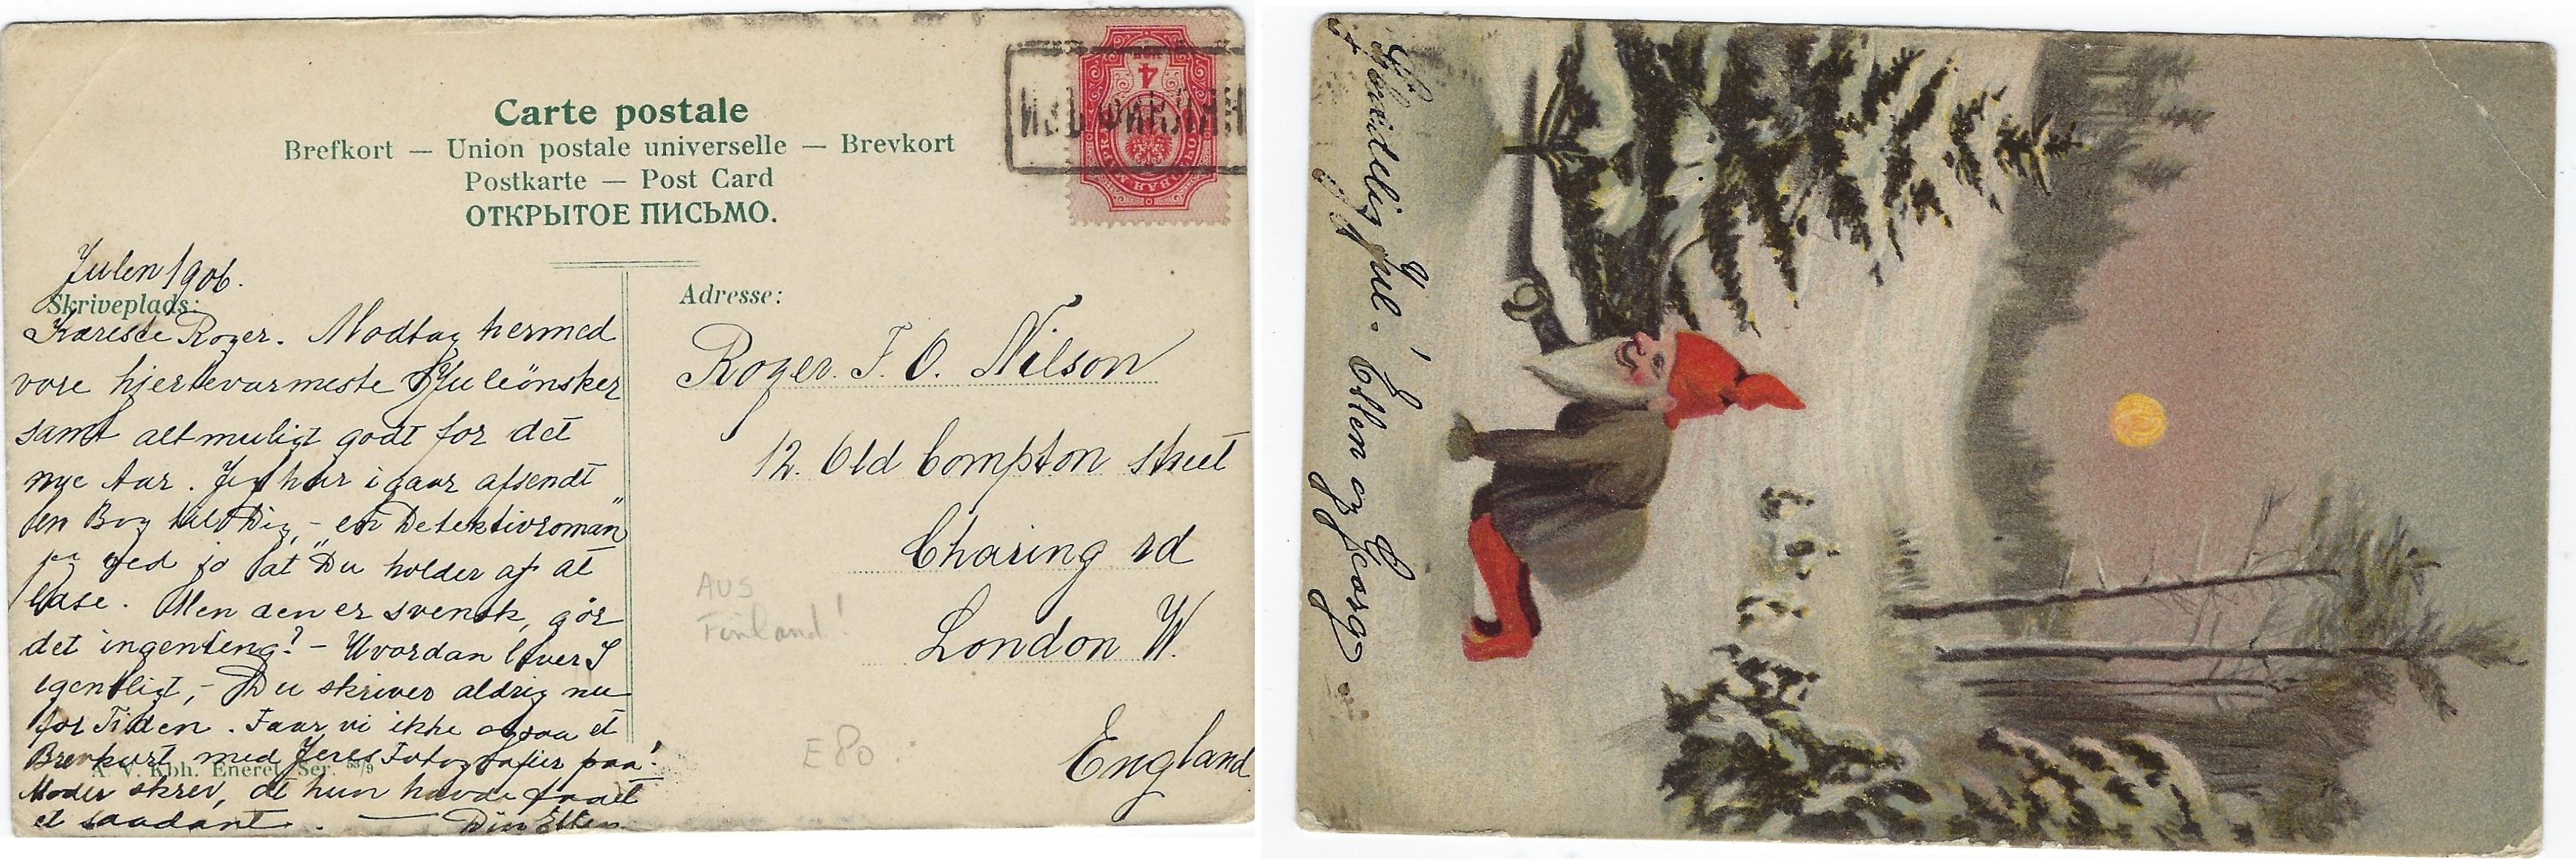 Carte postale
Brefkort — Union postale universelle — Brevkort
Postkarte — Post Card
ОТКРЫТОЕ ПИСЬМО.
ИЗЪ ФИНЛЯН
4
ПОЧТОВАЯ МАРКА
Julen 1906.
Skriveplads:
Kæreste Roger. Modtag hermed
vore hjertevarmeste Juleönsker
samt alt muligt godt for det
nye Aar. Jeg har igaar afsendt
en Bog til Dig, – en "Detektivroman"
jeg ved jo at Du holder af at
læse. Men den er svensk, gör
det ingenting? – Hvordan lever I
egentligt, – Du skriver aldrig nu
for Tiden. Faar vi ikke ogsaa et
Brevkort med Jeres Fotografier paa!
A. V. Kbh. Eneret Ser. 53/9
Moder skrev, at hun havde faaet
et saadant. — Din Ellen
Adresse:
Roger. F. O. Nilson
12. Old Compton street
Charing rd
London W.
England
AUS
Finland!
E80
Glædelig Jul. Ellen og Georg